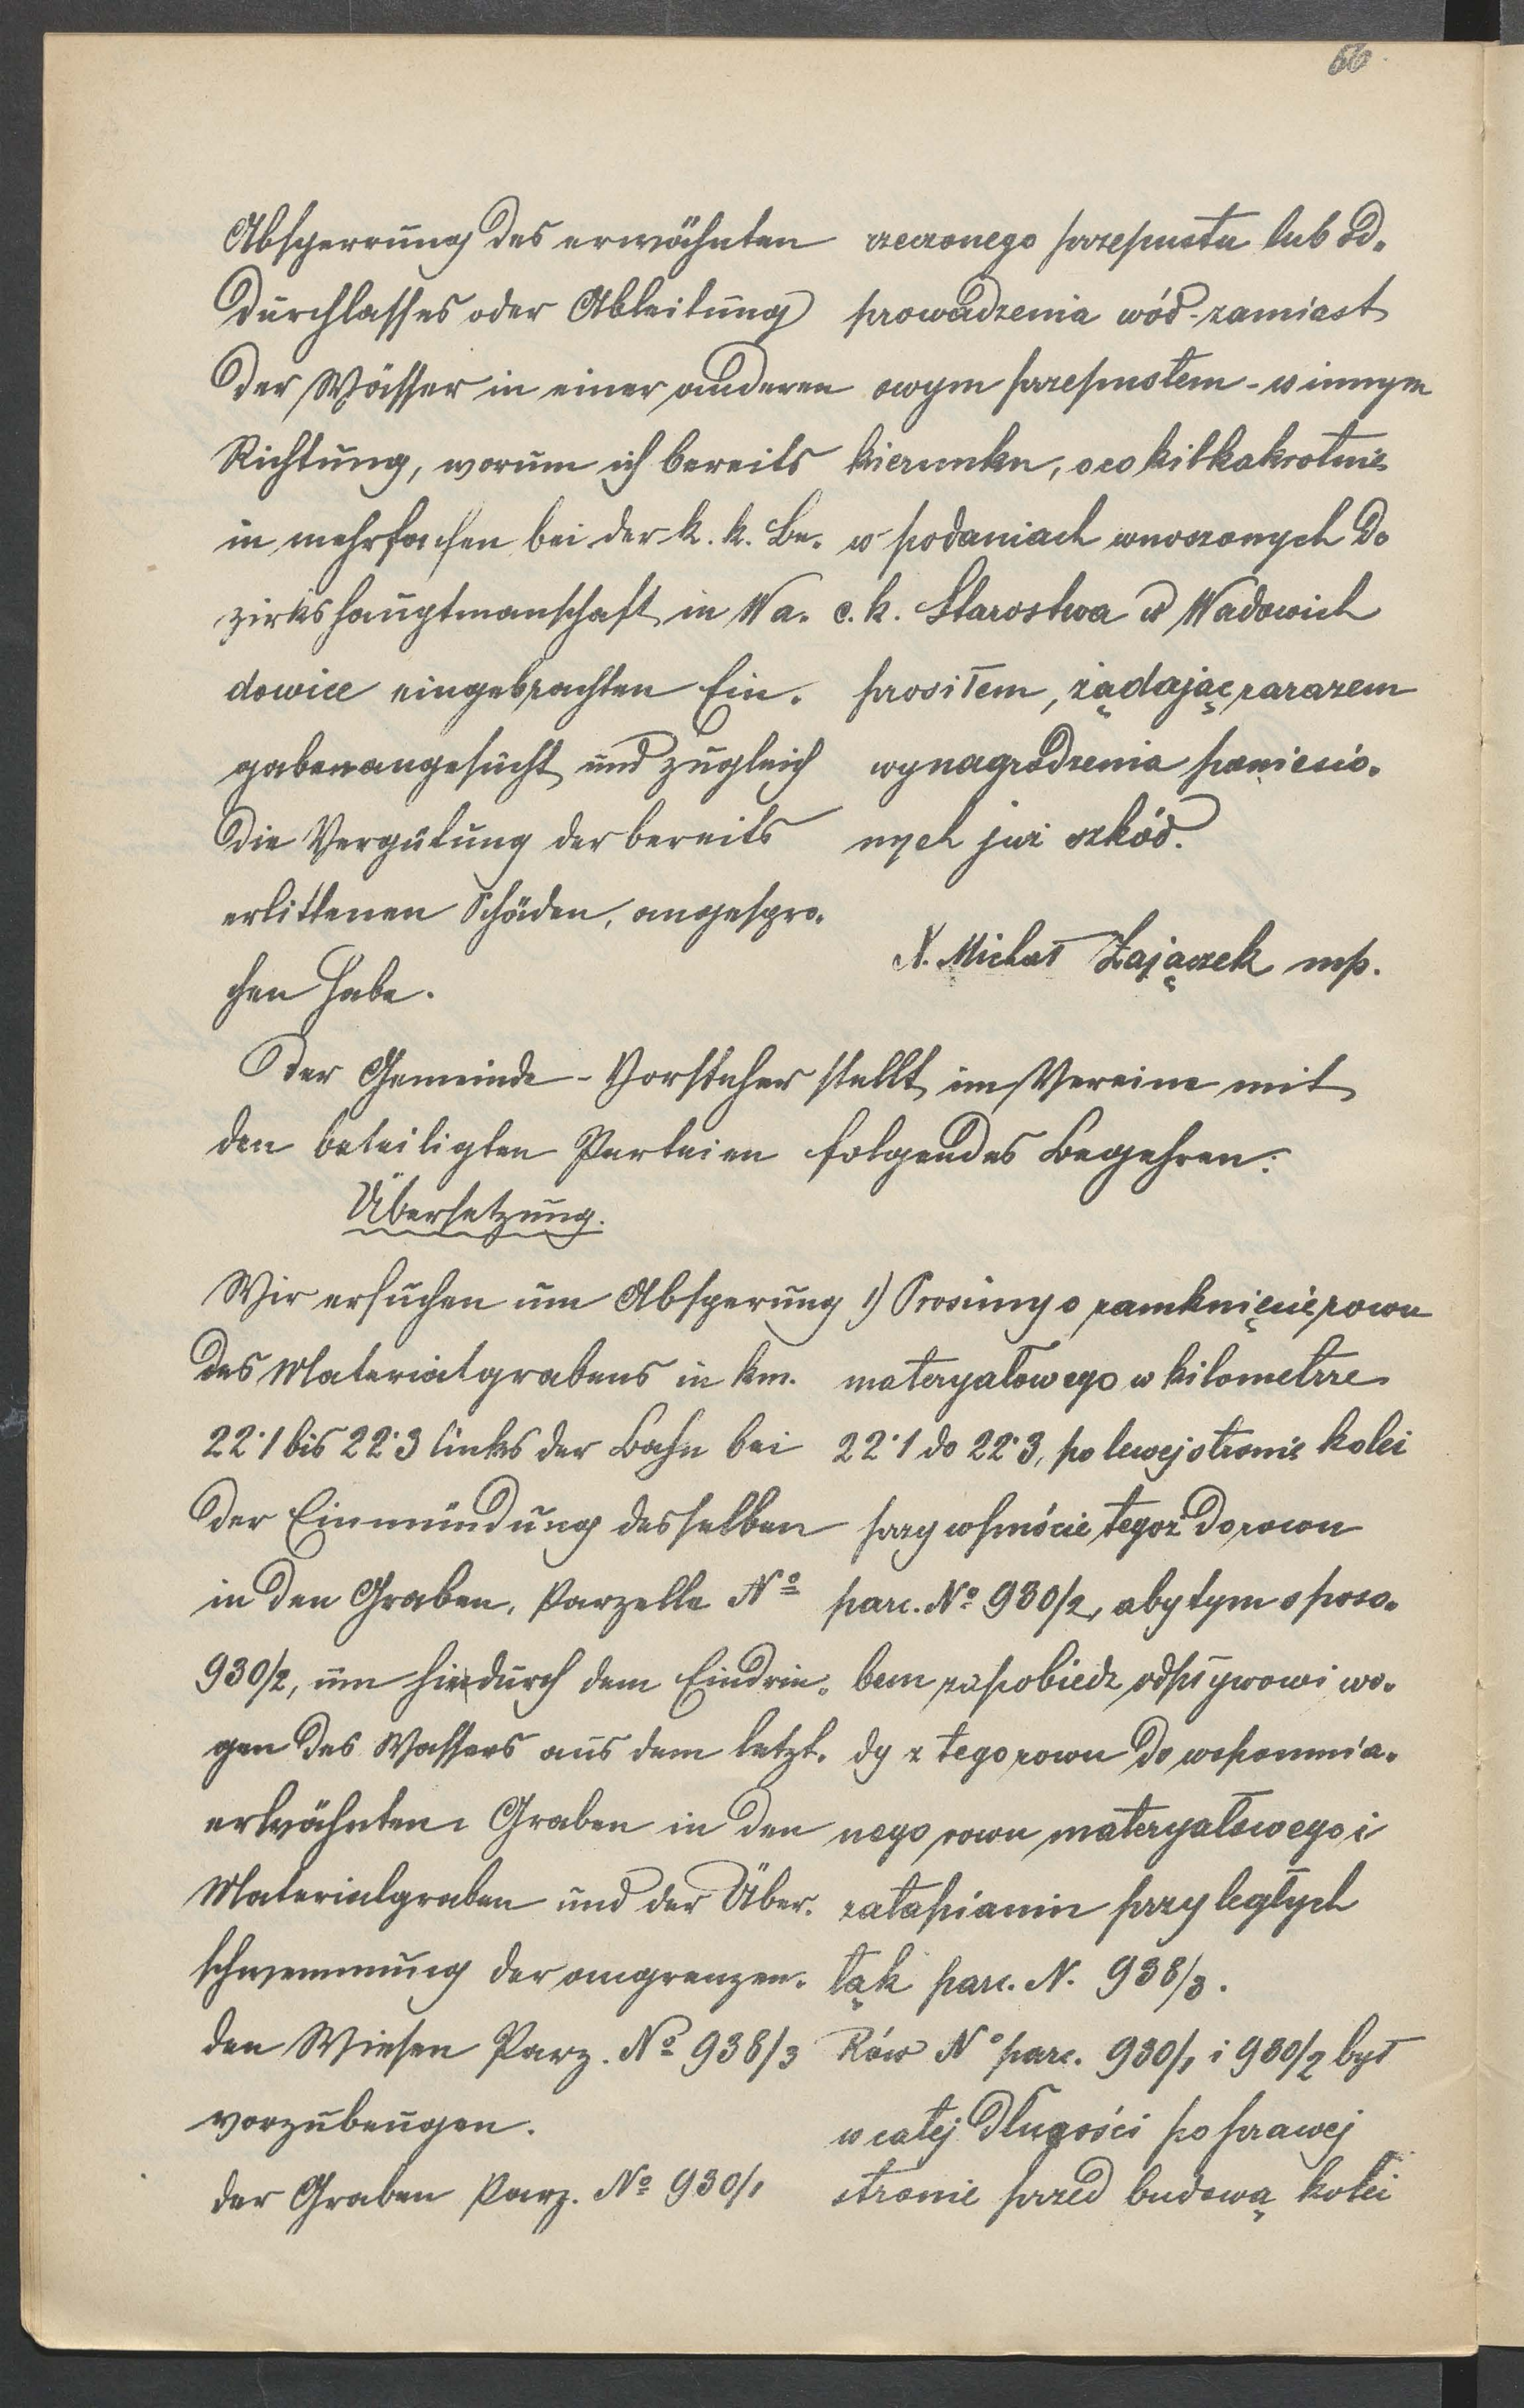 66
Absperrung des erwähnten
Durchlasses oder Ableitung
der Wässer in einer anderen
Richtung, worum ich bereits
in mehrfachen bei der k. k. Be-
zirkshauptmanschaft in Wa-
dowice eingebrachten Ein-
gaben angesucht und zugleich
die Vergütung der bereits
erlittenen Schäden, angespro-
chen habe.
rzeczonego przepustu lub od-
prowadzenia wód - zamiast
owym przepustem - w innym
kierunku, o co kilkakrotnie
w podaniach wnoszonych do
c. k. Starostwa w Wadowich
prosiłem, żądając zarazem
wynagrodzenia poniesio-
nych już szkód.
X. Michał Zajączek mp.
Der Gemeinde-Vorsteher stellt im Vereine mit
den beteiligten Parteien folgendes Begehren:
Übersetzung.
Wir ersuchen um Absperung
des Materialgrabens in km.
22·1 bis 22·3 links der Bahn bei
der Einmündung desselben
in den Graben, Parzelle No
930/2, um hiedurch dem Eindrin-
gen des Wassers aus dem letzt-
erwähnten Graben in den
Materialgraben und der Über-
schwemmung der angrenzen-
den Wiesen Parz. No 938/3
vorzubeugen.
der Graben Parz. No 930/1
1) Prosimy o zamknięcie rowu
materyałowego w kilometrze
22·1 do 22·3, po lewej stronie kolei
przy wpuście tegoż do rowu
parc. No 930/2, aby tym sposo-
bem zapobiedz odpływowi wo-
dy z tego rowu do wspomnia-
nego rowu materyałowego i
zatapianiu przyległych
łąk parc. N. 938/3.
Rów No parc. 930/1 i 930/2 był
w całej długości po prawej
stronie przed budową kolei